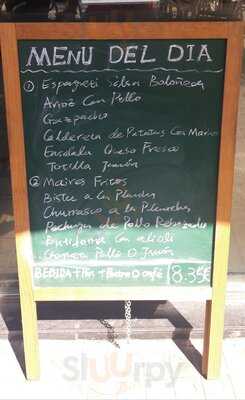 MENU DEL DIA
① Espagueti Salsa Boloñesa
Arroz Con Pollo
Gazpacho
Caldereta de Patatas Con Marisco
Ensalada Queso Fresco
Tortilla Jamón
② Maires Fritos
Bistec a la Plancha
Churrasco a la Plancha
Pechuga de Pollo Rebozada
con alioli
Pollo O Jamón
BEBIDA + Pan + Postre O café 8.35€
Sluurpy